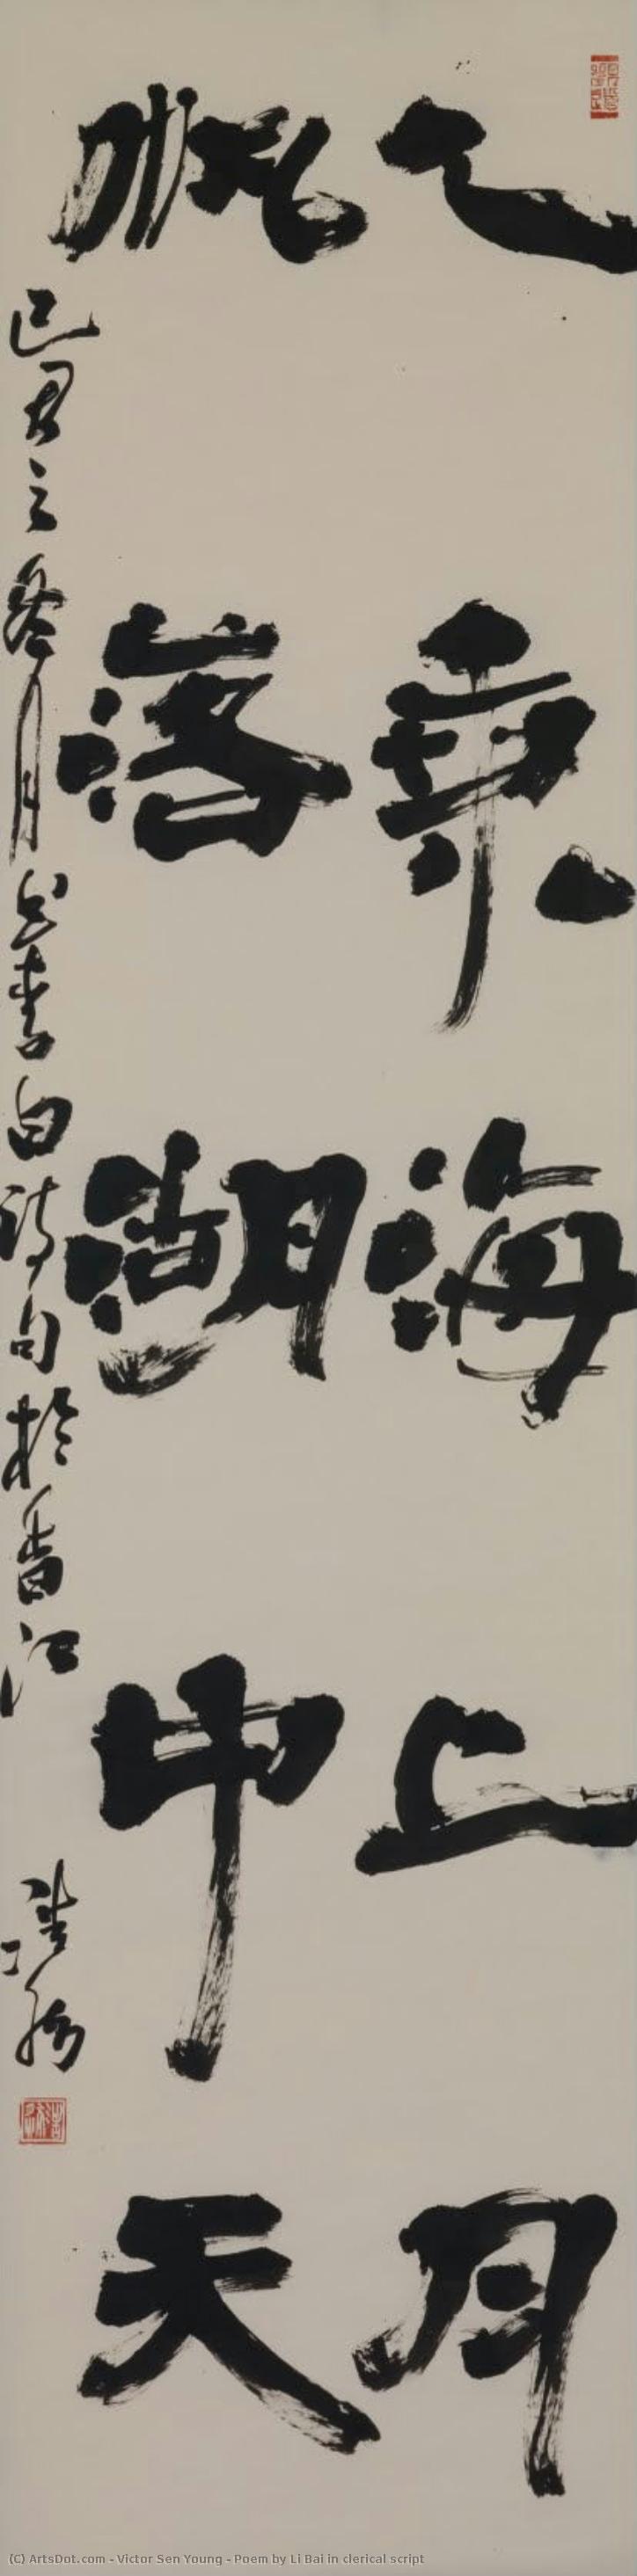 乙乘海上月
飄落湖中天
己丑之冬月出李白詩句於香江
(C) ArtsDot.com - Victor Sen Young - Poem by Li Bai in clerical script